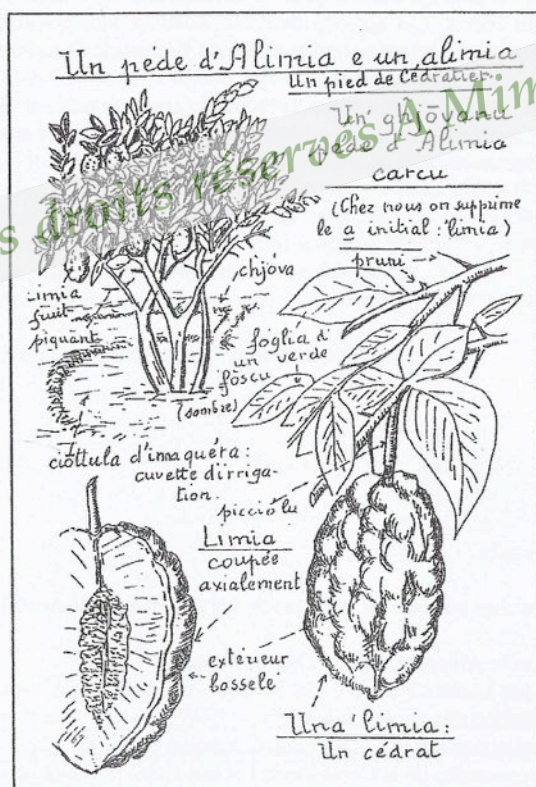 Un péde d'Alimia e un, alimia
Un pied de Cédratier
Un' ghjōvanu
péde d'Alimia
carcu
(Chez nous on supprime
le a initial : 'limia)
s droits réservés A Mim
pruni
chjóva
Limia
fruit
piquant
foglia d'
un verde
fóscu
(sombre)
cióttula d'imaquéra:
cuvette d'irriga-
tion.
picciólu
Limia
coupée
axialement
extérieur
bosselé
Una' limia:
Un cédrat